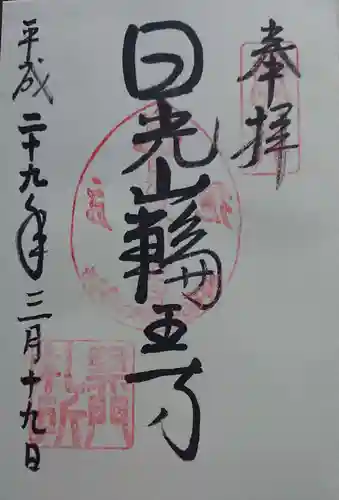 奉拝
日光山輪王寺
平成二十九年三月十九日